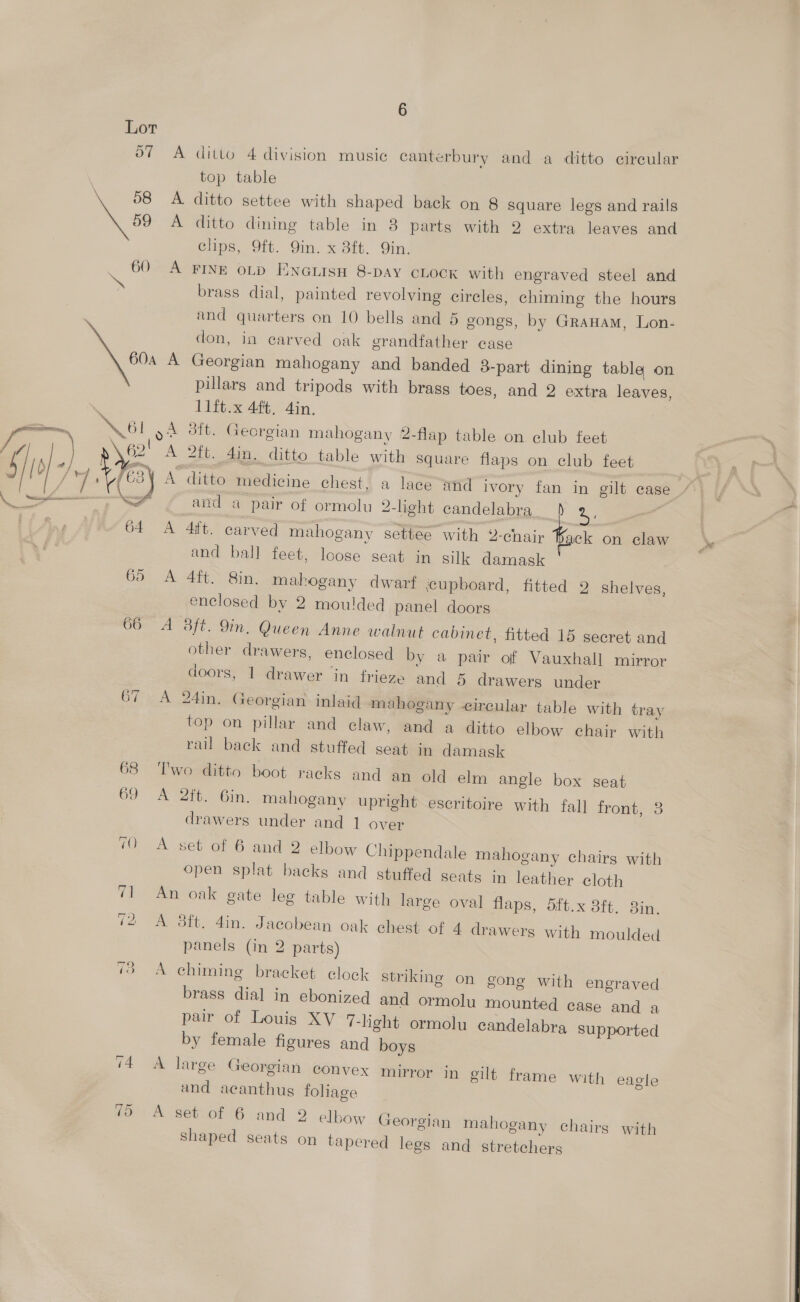 6
Lot
57 A ditto 4 division music canterbury and a ditto circular
top table
58 A ditto settee with shaped back on 8 square legs and rails
59 A ditto dining table in 3 parts with 2 extra leaves and
clips, 9ft. 9in. x 3ft. 9in.
60 A FINE OLD ENGLISH 8-DAY CLOCK with engraved steel and
brass dial, painted revolving circles, chiming the hours
and quarters on 10 bells and 5 gongs, by GRAHAM, Lon-
don, in carved oak grandfather case
60A A Georgian mahogany and banded 3-part dining table on
pillars and tripods with brass toes, and 2 extra leaves,
11ft. x 4ft. 4in.
61 A 3ft. Georgian mahogany 2-flap table on club feet
62 A 2ft. 4in. ditto table with square flaps on club feet
63 A ditto medicine chest, a lace and ivory fan in gilt case
and a pair of ormolu 2-light candelabra
64 A 4ft. carved mahogany settee with 2-chair back on claw
and ball feet, loose seat in silk damask
65 A 4ft. 8in. mahogany dwarf cupboard, fitted 2 shelves,
enclosed by 2 moulded panel doors
66 A 3ft. 9in. Queen Anne walnut cabinet, fitted 15 secret and
other drawers, enclosed by a pair of Vauxhall mirror
doors, 1 drawer in frieze and 5 drawers under
67 A 24in. Georgian inlaid mahogany circular table with tray
top on pillar and claw, and a ditto elbow chair with
rail back and stuffed seat in damask
68 Two ditto boot racks and an old elm angle box seat
69 A 2ft. 6in. mahogany upright escritoire with fall front, 3
drawers under and 1 over
70 A set of 6 and 2 elbow Chippendale mahogany chairs with
open splat backs and stuffed seats in leather cloth
71 An oak gate leg table with large oval flaps, 5ft. x 3ft. 3in.
72 A 3ft. 4in. Jacobean oak chest of 4 drawers with moulded
panels (in 2 parts)
73 A chiming bracket clock striking on gong with engraved
brass dial in ebonized and ormolu mounted case and a
pair of Louis XV 7-light ormolu candelabra supported
by female figures and boys
74 A large Georgian convex mirror in gilt frame with eagle
and acanthus foliage
75 A set of 6 and 2 elbow Georgian mahogany chairs with
shaped seats on tapered legs and stretchers